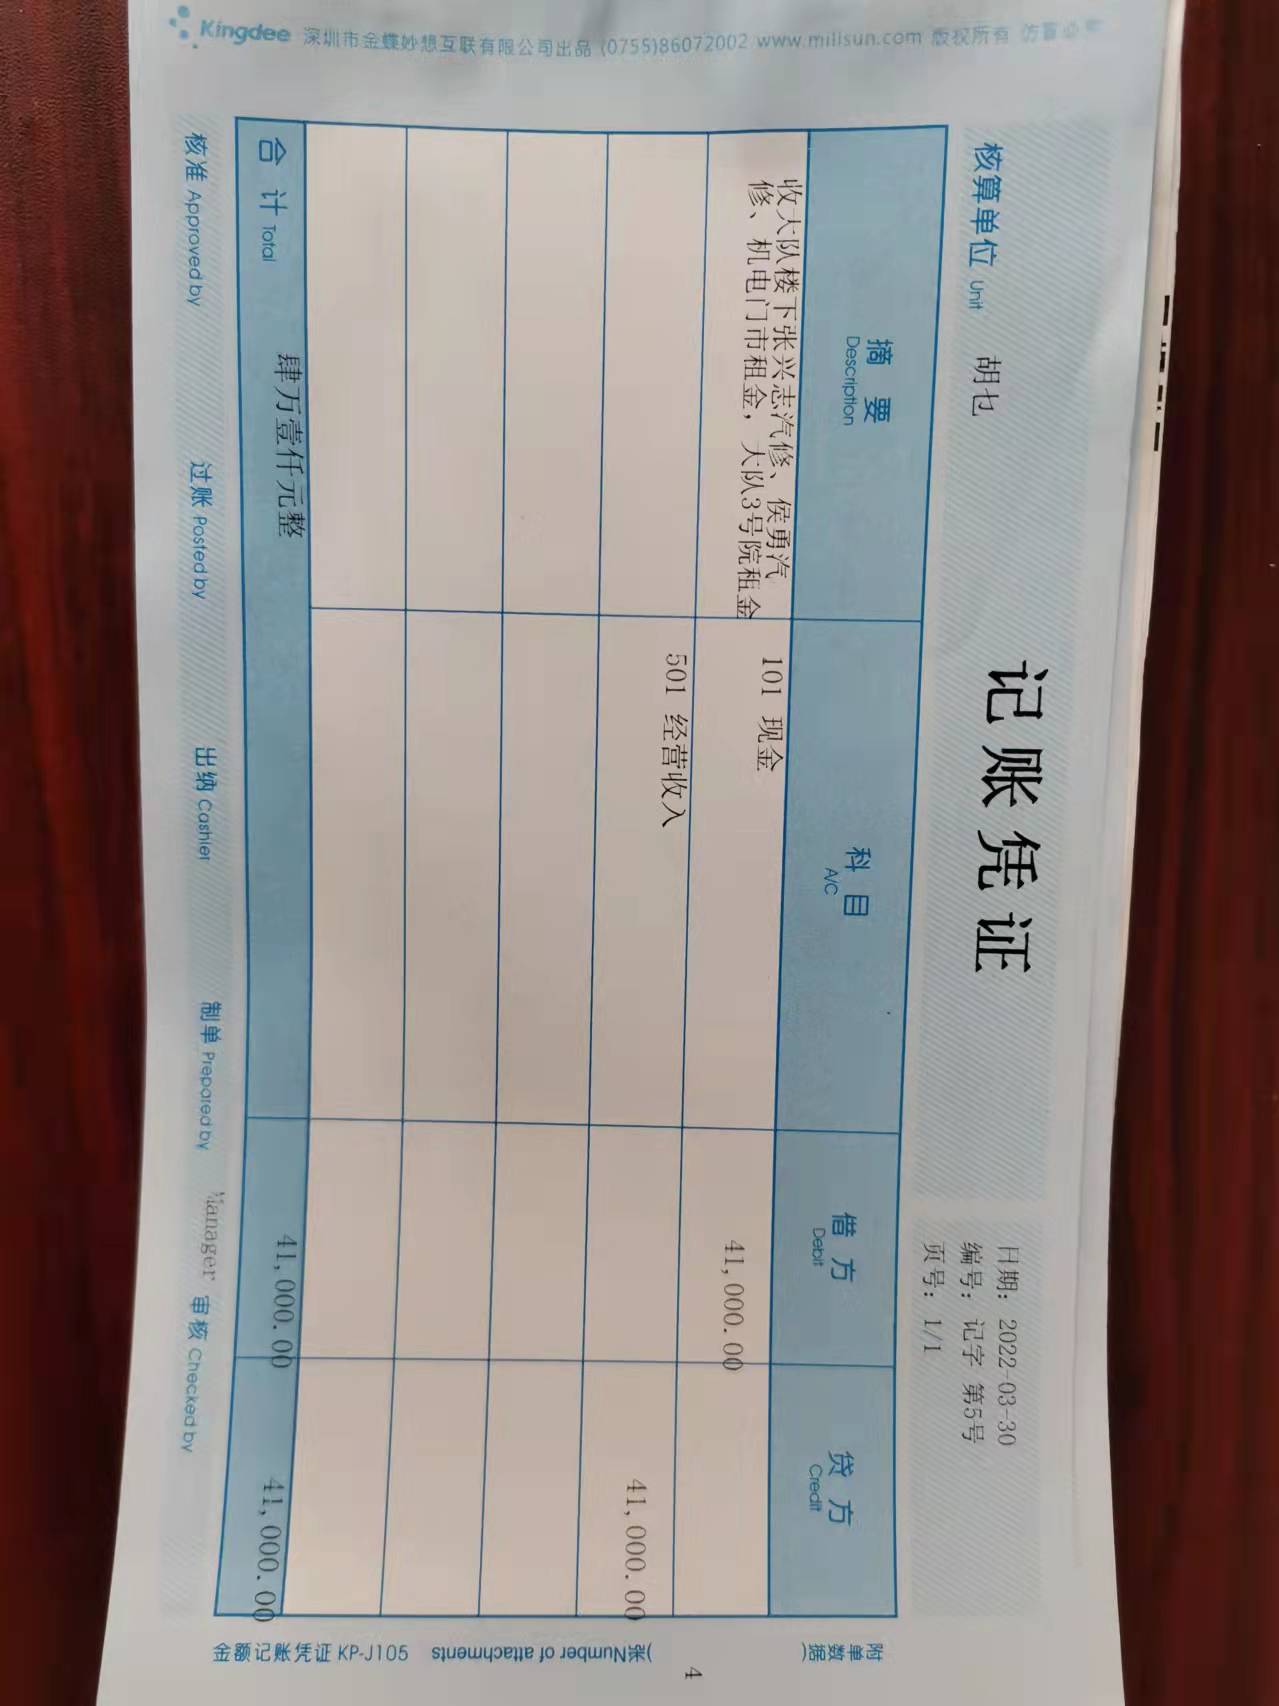 记账凭证
日期：2022-03-30
编号：记字 第5号
页号：1/1
核算单位 Unit 胡乜
摘要 科目 借方 贷方
Description A/C Debit Credit
收大队楼下张兴志汽修、侯勇汽
修、机电门市租金，大队3号院租金 101 现金 41,000.00
501 经营收入 41,000.00
合计 Total 肆万壹仟元整 41,000.00 41,000.00
核准 Approved by 过账 Posted by 出纳 Cashier 制单 Prepared by Manager 审核 Checked by
附单据数(
4
)张 Number of attachments
金额记账凭证 KP-J105
Kingdee 深圳市金蝶妙想互联有限公司出品 (0755)86072002 www.milisun.com 版权所有 仿冒必